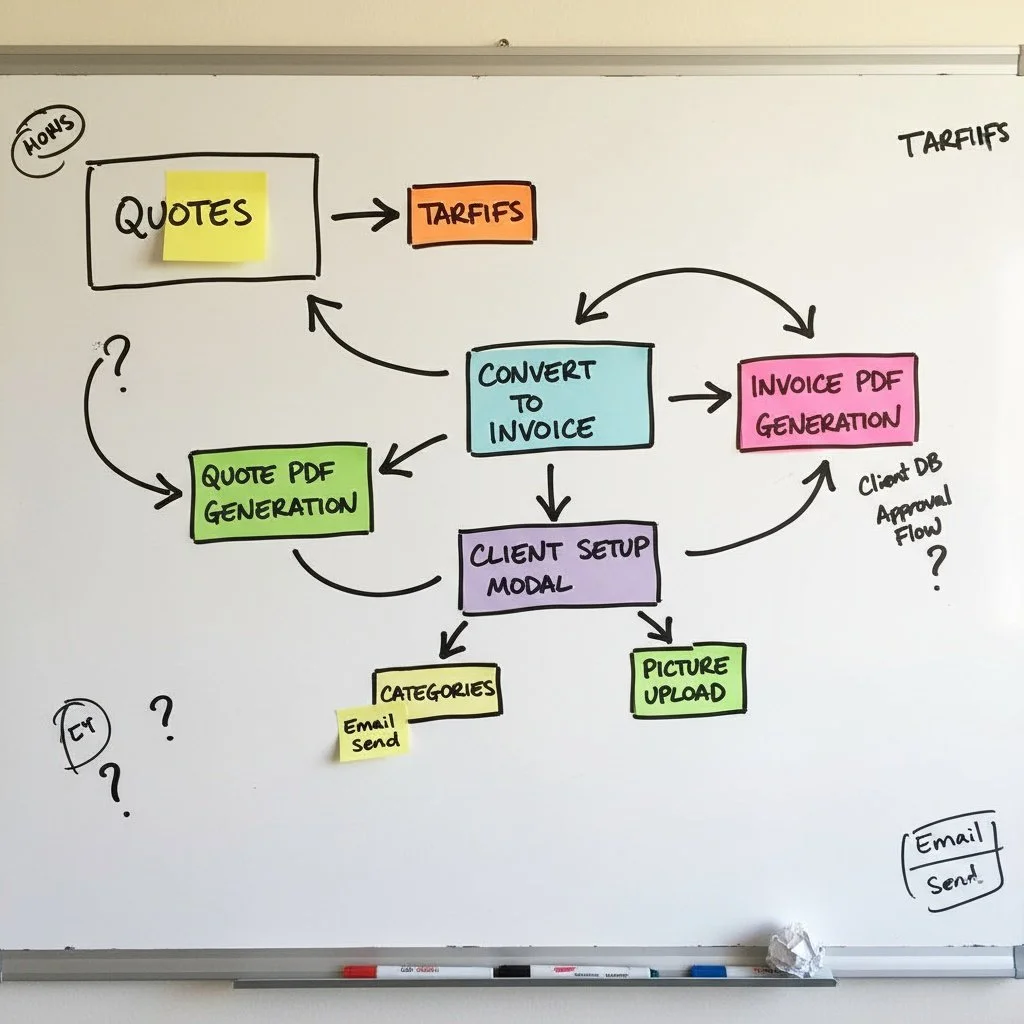 TARFIFS
QUOTES
TARFIFS
?
CONVERT
TO
INVOICE
INVOICE PDF
GENERATION
QUOTE PDF
GENERATION
Client DB
Approval
Flow
?
CLIENT SETUP
MODAL
CATEGORIES
Email
Send
PICTURE
UPLOAD
?
?
Email
Send